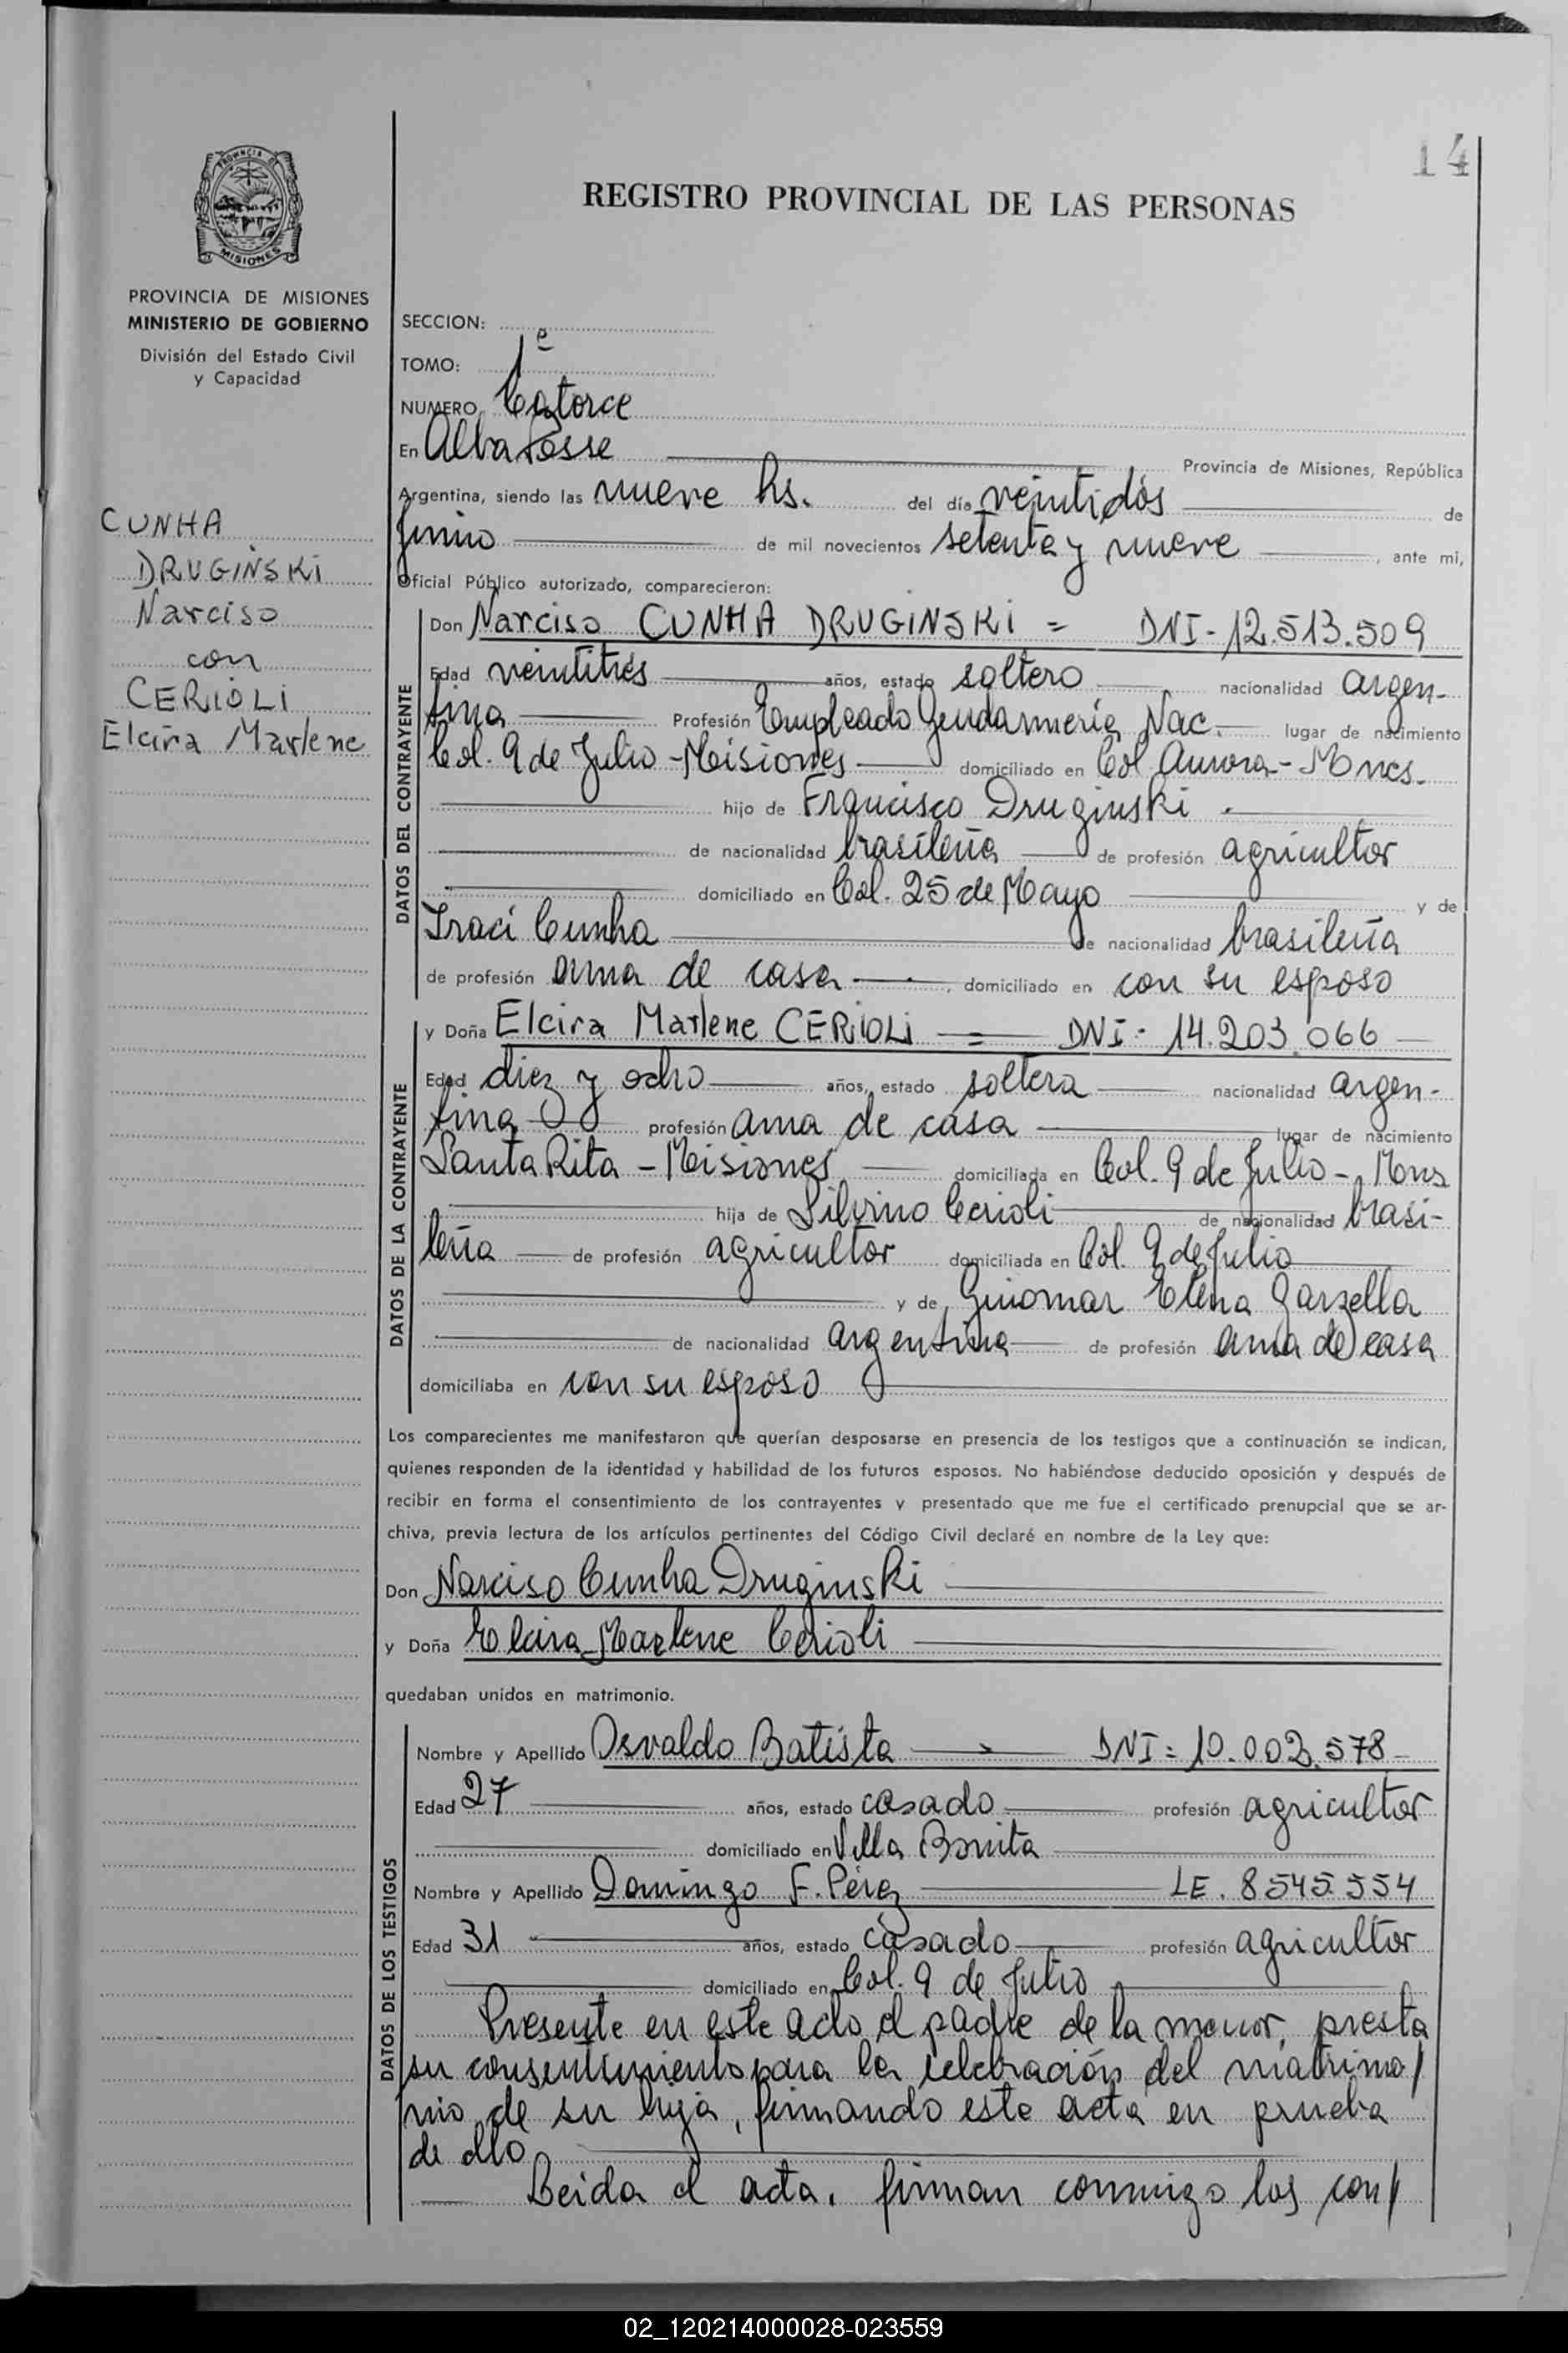 14
PROVINCIA DE
MISIONES
REGISTRO PROVINCIAL DE LAS PERSONAS
PROVINCIA DE MISIONES
MINISTERIO DE GOBIERNO
División del Estado Civil
y Capacidad
CUNHA
DRUGINSKI
Narciso
con
CERIOLI
Elcira Marlene
SECCION:
TOMO: 1º
NUMERO Catorce
En Alba Posse Provincia de Misiones, República
Argentina, siendo las nueve hs. del día veintidós de
Junio de mil novecientos setenta y nueve, ante mi,
Oficial Público autorizado, comparecieron:
DATOS DEL CONTRAYENTE
Don Narciso CUNHA DRUGINSKI = DNI-12.513.509
Edad veintitrés años, estado soltero nacionalidad argen-
tina Profesión Empleado Gendarmería Nac. lugar de nacimiento
Col. 9 de Julio - Misiones domiciliado en Col. Aurora - Mnes.
hijo de Francisco Druginski
de nacionalidad brasileña de profesión agricultor
domiciliado en Col. 25 de Mayo y de
Iraci Cunha de nacionalidad brasileña
de profesión ama de casa, domiciliado en con su esposo
DATOS DE LA CONTRAYENTE
y Doña Elcira Marlene CERIOLI = DNI- 14.203.066
Edad diez y ocho años, estado soltera nacionalidad argen-
tina profesión ama de casa lugar de nacimiento
Santa Rita - Misiones domiciliada en Col. 9 de Julio - Mnes
hija de Silvino Cerioli de nacionalidad brasi-
leña de profesión agricultor domiciliada en Col. 9 de Julio
y de Guiomar Elena Garzella
de nacionalidad argentina de profesión ama de casa
domiciliaba en con su esposo
Los comparecientes me manifestaron que querían desposarse en presencia de los testigos que a continuación se indican,
quienes responden de la identidad y habilidad de los futuros esposos. No habiéndose deducido oposición y después de
recibir en forma el consentimiento de los contrayentes y presentado que me fue el certificado prenupcial que se ar-
chiva, previa lectura de los artículos pertinentes del Código Civil declaré en nombre de la Ley que:
Don Narciso Cunha Druginski
y Doña Elcira Marlene Cerioli
quedaban unidos en matrimonio.
DATOS DE LOS TESTIGOS
Nombre y Apellido Osvaldo Batista DNI= 10.002.578
Edad 27 años, estado casado profesión agricultor
domiciliado en Villa Bonita
Nombre y Apellido Domingo F. Pérez LE. 8545.554
Edad 31 años, estado casado profesión agricultor
domiciliado en Col. 9 de Julio
Presente en este acto el padre de la menor, presta
su consentimiento para la celebración del matrimo/
nio de su hija, firmando este acta en prueba
de ello
Leida el acta, firman conmigo los con/
02_120214000028-023559